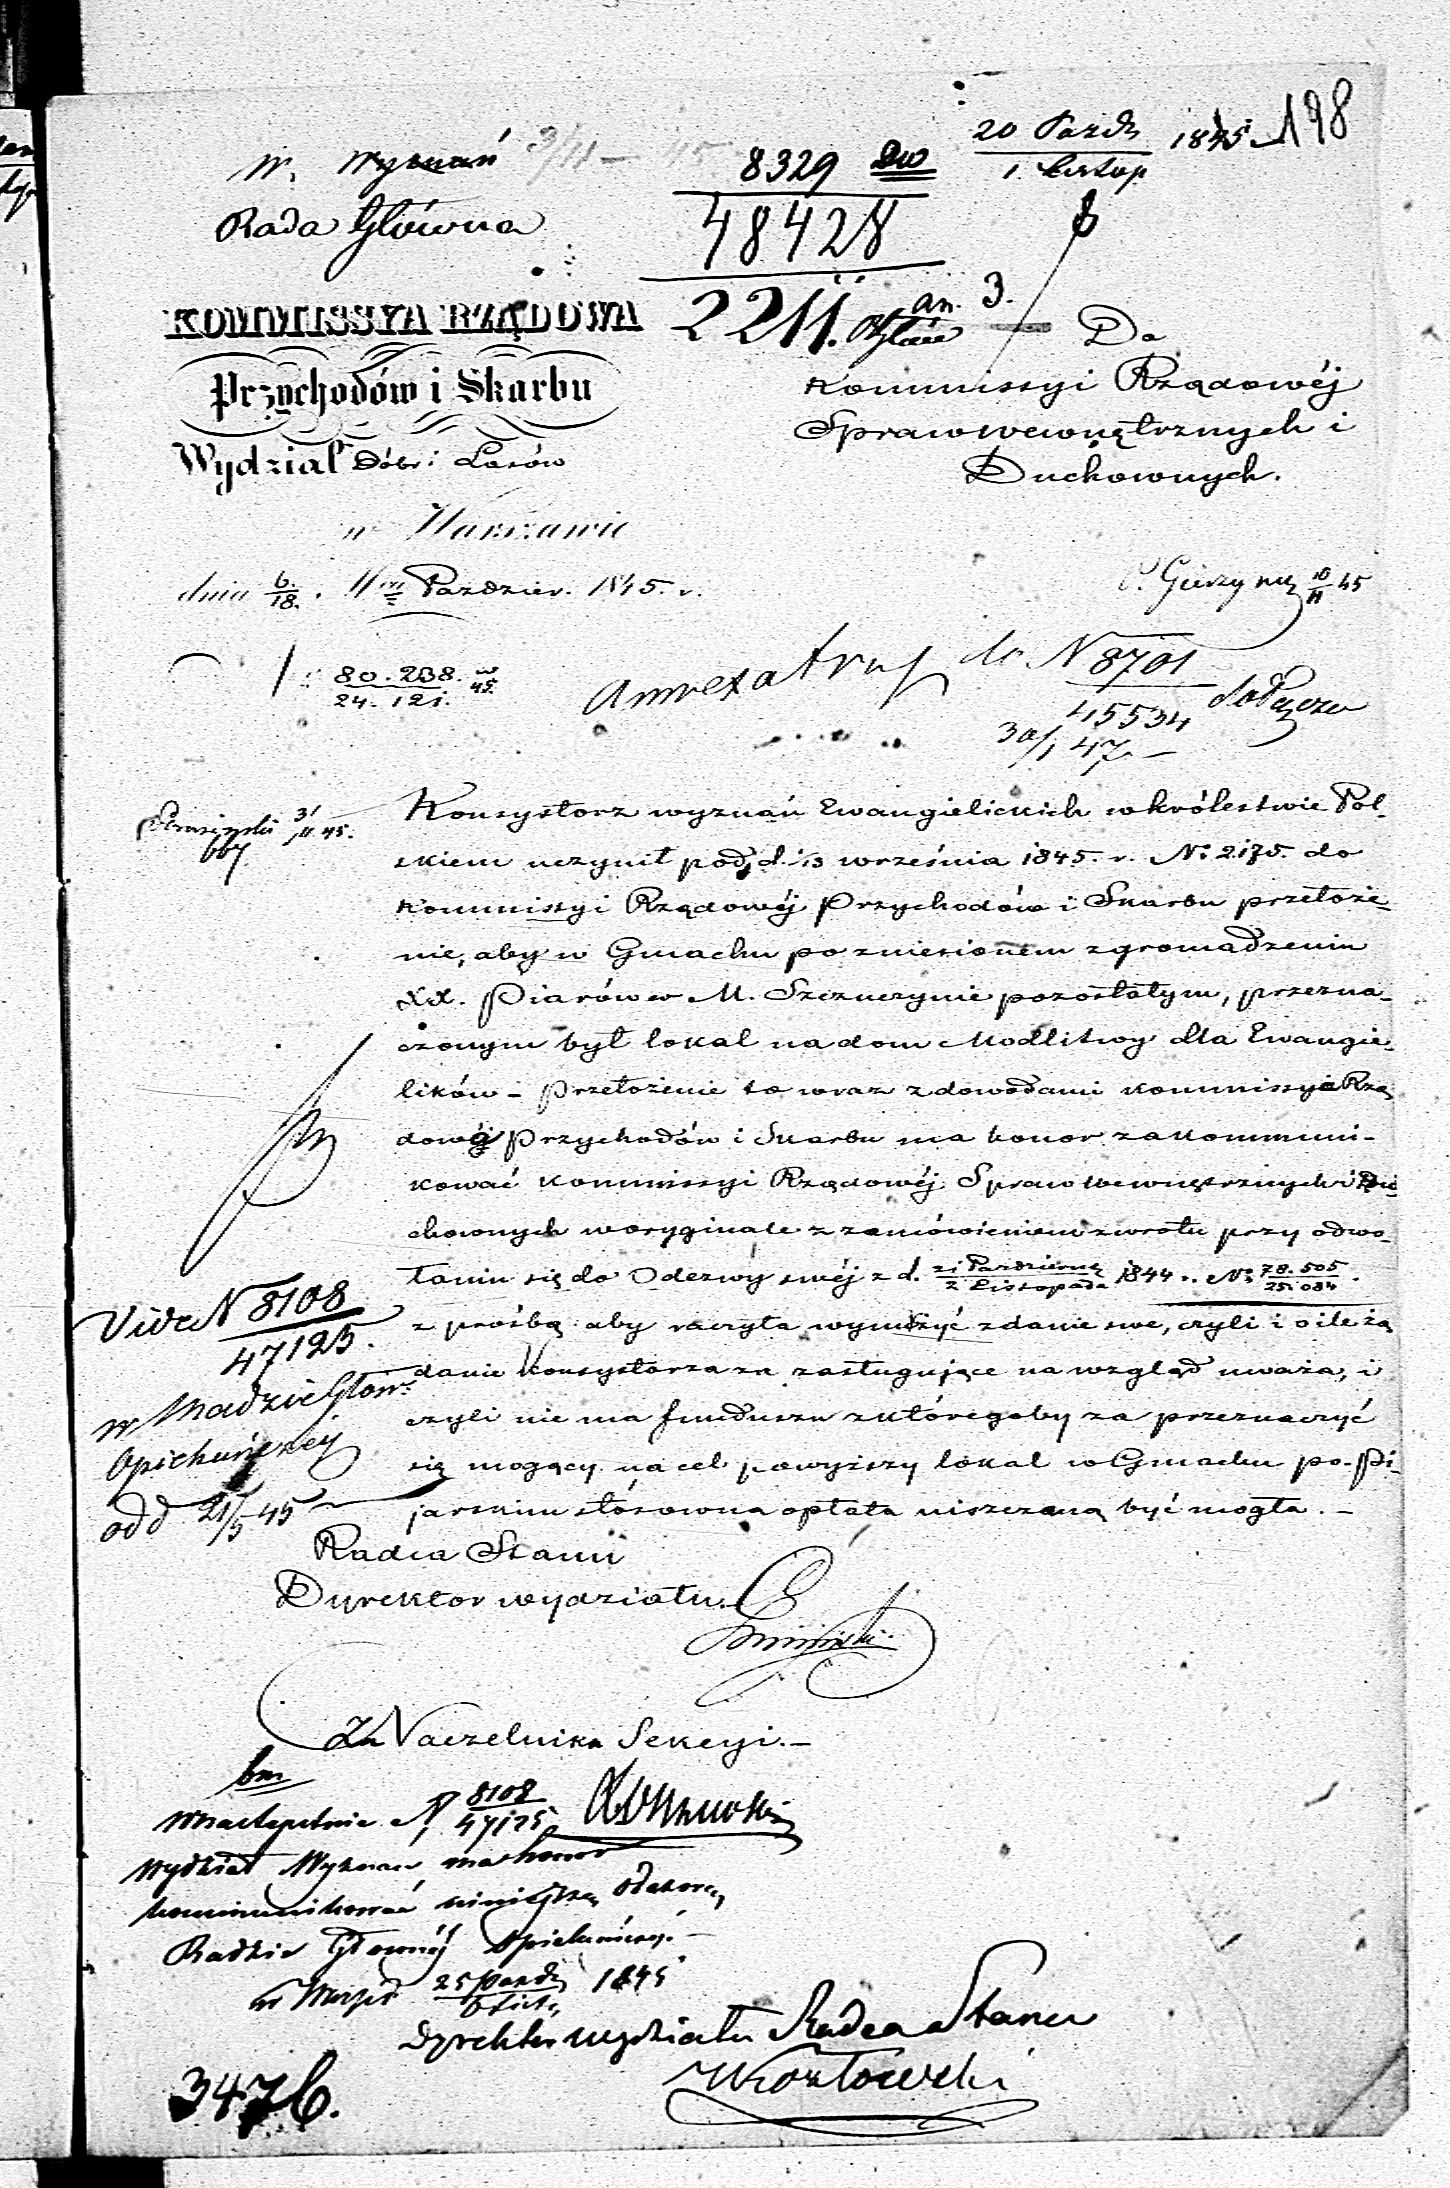 198
20 Paźdz. 1845
1 Listop
W. Wyznań 3/11 — 45
8329 DW
Rada Główna
48428
2211. an. 3.
KOMMISSYA RZĄDOWA
Przychodów i Skarbu
Wydział Dóbr i Lasów
Do
Kommissyi Rządowéj
Spraw Wewnętrznych i
Duchownych.
w Warszawie
dnia 6./18. Paździer. 1845. r.
10/11 45
N 80.238./24.121. w 45.
do N 8701
45534
30/1 47
3/11 45.
Konsystorz wyznań Ewangielickich w królestwie Pol-
skiem uczynił pod d. 1/13 września 1845. r. No 2175. do
Kommissyi Rządowéj Przychodów i Skarbu przełoże-
nie, aby w Gmachu po zniesionem zgromadzeniu
XX. Piarów w M. Szczuczynie pozostałym, przezna-
czonym był lokal na dom Modlitwy dla Ewangie-
lików – Przełożenie to wraz z dowodami Kommissyia Rzą
dowa Przychodów i Skarbu ma honor zakommuni-
kować Kommissyi Rządowéj Spraw Wewnętrznych i Du
chownych w oryginale z zamówieniem zwrotu przy odwo-
łaniu się do Odezwy swéj z d. 21 Październ./2 Listopada 1844 r. No 78.505/25.084.
z prośbą aby raczyła wynurzyć zdanie swe, czyli i o ile żą
danie Konsystorza za zasługujące na wzgląd uważa, i
czyli nie ma funduszu z któregoby za przeznaczyć
się mogący na cel powyższy lokal w Gmachu po-Pi-
jarskim stósowna opłata uiszczaną być mogła. –
Vide N 8108
47125.
w Radzie Głów.
Opiekuńczej
odd 21/5 45
Radca Stanu
Dyrektor wydziału.
Za Naczelnika Sekcyi. –
bm
W nastepstwie N 8108/47125
Wydział Wyznań ma honor
kommunikować niniejszą odezwę
Radzie Głównéj Opiekuńczej. –
w Warsz. 25 Paźdz/6 List. 1845
Dyrektor wydziału Radca Stanu
Kozłowski
3476.